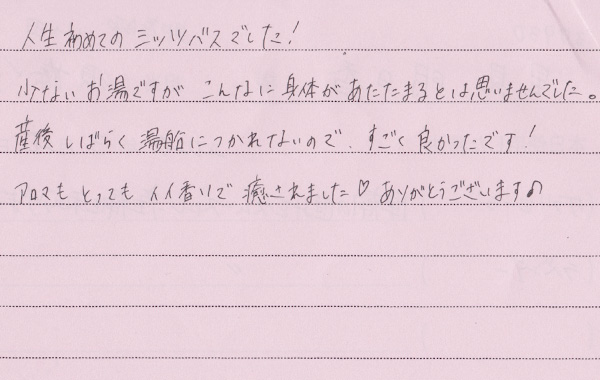 人生初めてのミッツバスでした!
少ないお湯ですがこんなに身体があたたまるとは思いませんでした。
産後しばらく湯船につかれないので、すごく良かったです!
アロマもとってもイイ香りで癒されました♡ありがとうございます♪